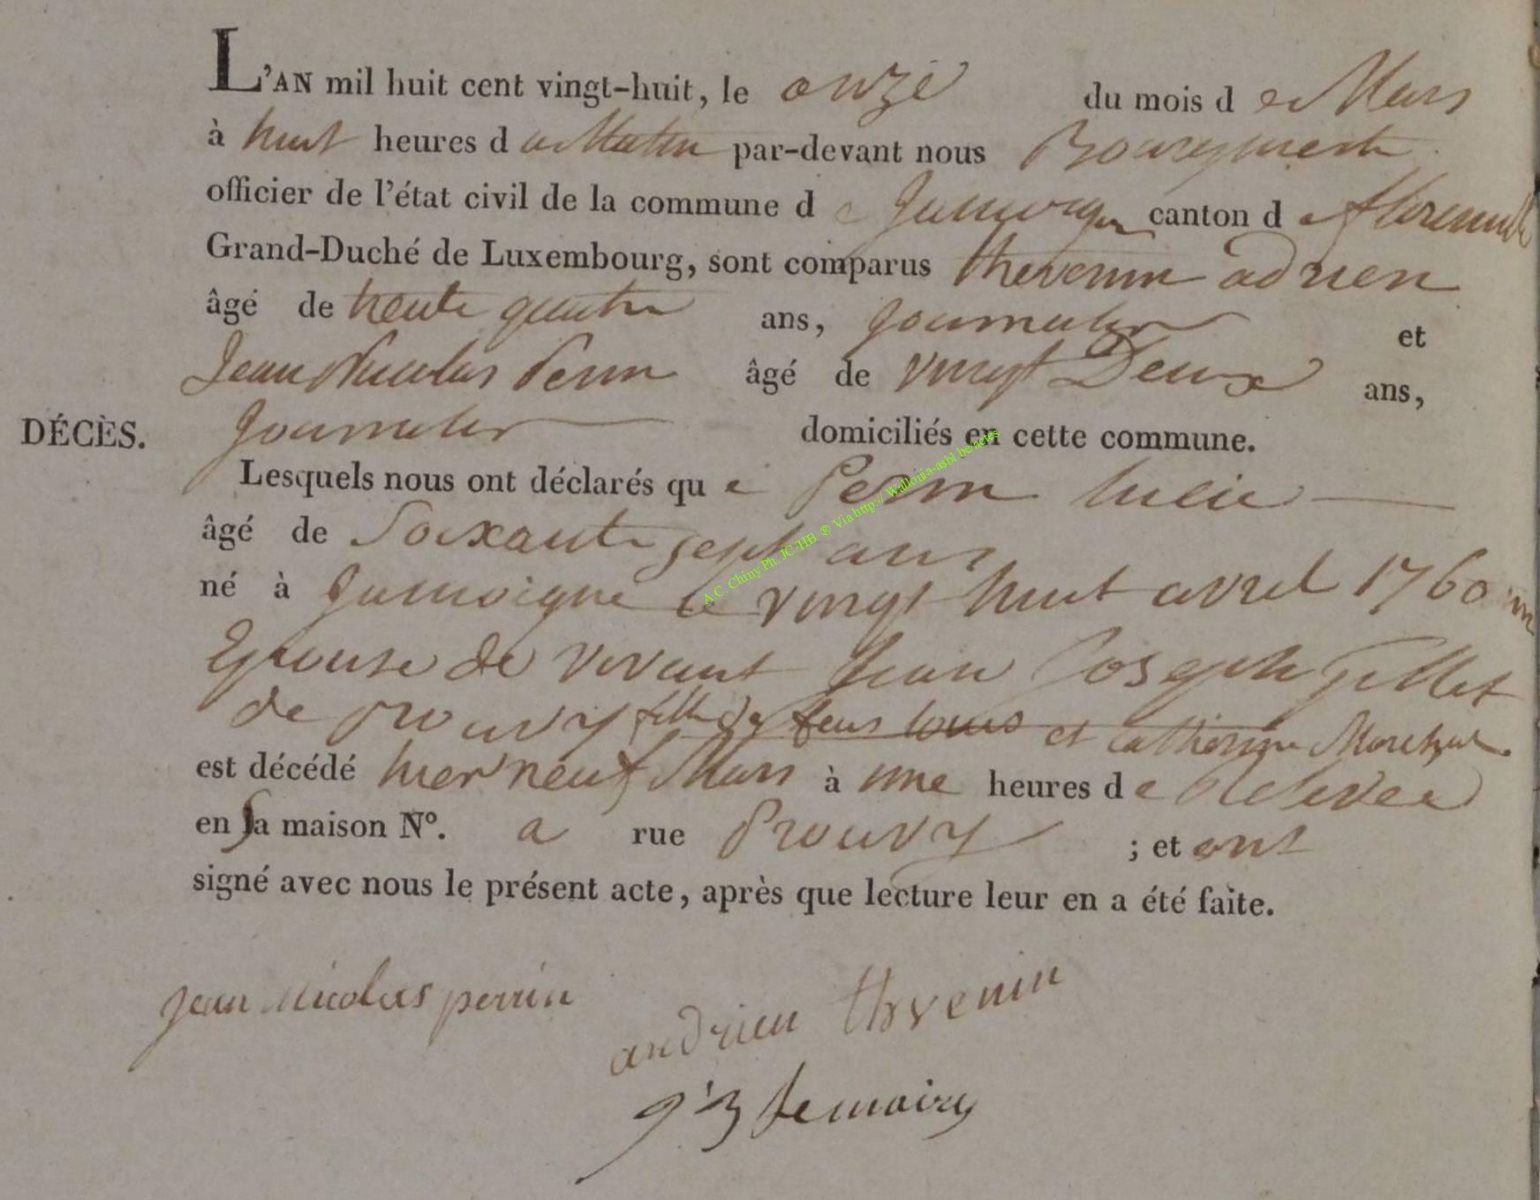 L'AN mil huit cent vingt-huit, le onze du mois de Mars
à huit heures du Matin par-devant nous Bourgmestre
officier de l'état civil de la commune de Jamoigne canton de florenville
Grand-Duché de Luxembourg, sont comparus thevenin adrien
âgé de trente quatre ans, Journalier et
Jean Nicolas Perin âgé de vingt Deux ans,
DÉCÈS. Journalier domiciliés en cette commune.
Lesquels nous ont déclarés que Perin lucie
âgé de Soixante sept ans
né à Jamoigne le vingt huit avril 1760
Epouse de vivant Jean Joseph gillet
de prouvy fille de feus louis et catherine Marechal
est décédé hier neuf Mars à une heures de Relevée
en sa maison N°. a rue Prouvy ; et ont
signé avec nous le présent acte, après que lecture leur en a été faite.
jean nicolas perrin
andrien thvenin
lemoine
A.C. Chiny Ph. JC-HB ® Via http:// Wallonia-asbl be/actes